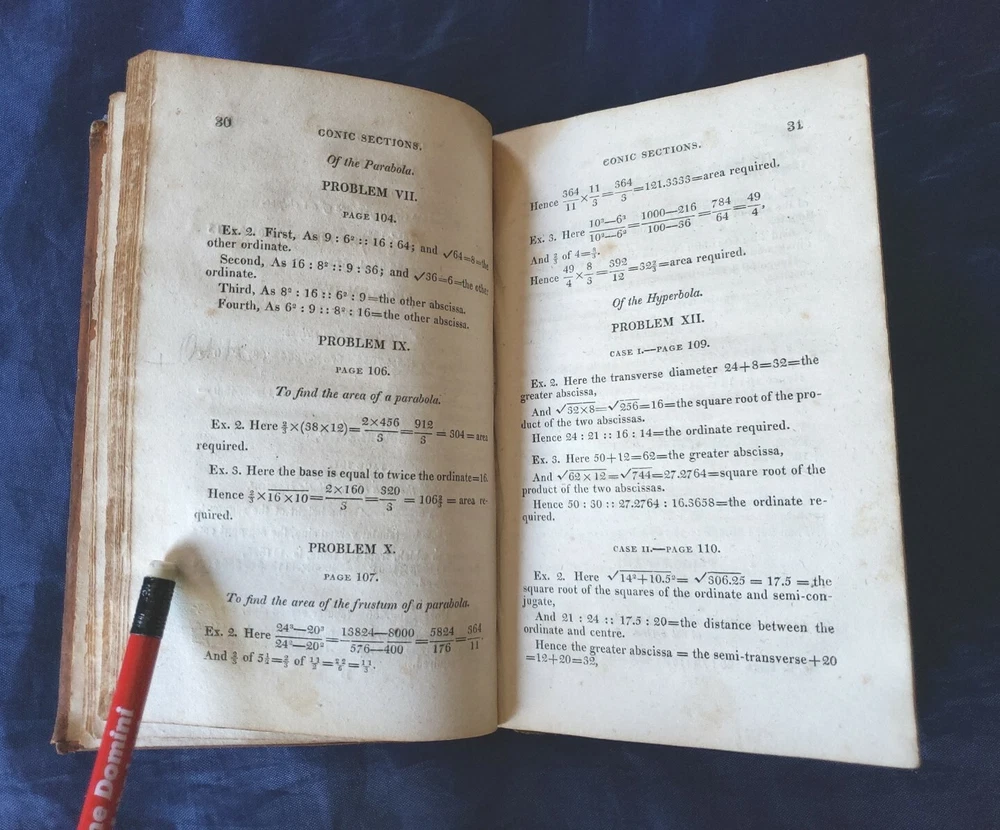 30
CONIC SECTIONS.
Of the Parabola.
PROBLEM VII.
PAGE 104.
Ex. 2. First, As 9 : 6² :: 16 : 64; and √64=8=the
other ordinate.
Second, As 16 : 8² :: 9 : 36; and √36=6=the other
ordinate.
Third, As 8² : 16 :: 6² : 9=the other abscissa.
Fourth, As 6² : 9 :: 8² : 16=the other abscissa.
PROBLEM IX.
PAGE 106.
To find the area of a parabola.
Ex. 2. Here ⅔×(38×12)=2×456/3=912/3=304=area
required.
Ex. 3. Here the base is equal to twice the ordinate=16.
Hence ⅔×16×10=2×160/3=320/3=106⅔=area re-
quired.
PROBLEM X.
PAGE 107.
To find the area of the frustum of a parabola.
Ex. 2. Here 24³—20³/24²—20²=13824—8000/576—400=5824/176=364/11
And ⅔ of 5½=⅔ of 11/2=22/6=11/3.
31
CONIC SECTIONS.
Hence 364/11×11/3=364/3=121.3333=area required.
Ex. 3. Here 10³—6³/10²—6²=1000—216/100—36=784/64=49/4,
And ⅔ of 4=8/3.
Hence 49/4×8/3=392/12=32⅔=area required.
Of the Hyperbola.
PROBLEM XII.
CASE I.—PAGE 109.
Ex. 2. Here the transverse diameter 24+8=32=the
greater abscissa,
And √32×8=√256=16=the square root of the pro-
duct of the two abscissas.
Hence 24 : 21 :: 16 : 14=the ordinate required.
Ex. 3. Here 50+12=62=the greater abscissa,
And √62×12=√744=27.2764=square root of the
product of the two abscissas.
Hence 50 : 30 :: 27.2764 : 16.3658=the ordinate re-
quired.
CASE II.—PAGE 110.
Ex. 2. Here √14²+10.5²=√306.25 = 17.5 =the
square root of the squares of the ordinate and semi-con-
jugate,
And 21 : 24 :: 17.5 : 20=the distance between the
ordinate and centre.
Hence the greater abscissa = the semi-transverse+20
=12+20=32,
ne Domini